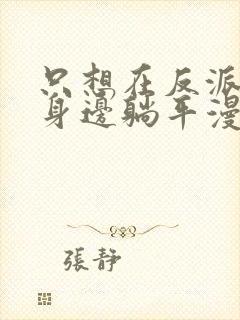 只想在反派
身邊躺平漫
張靜